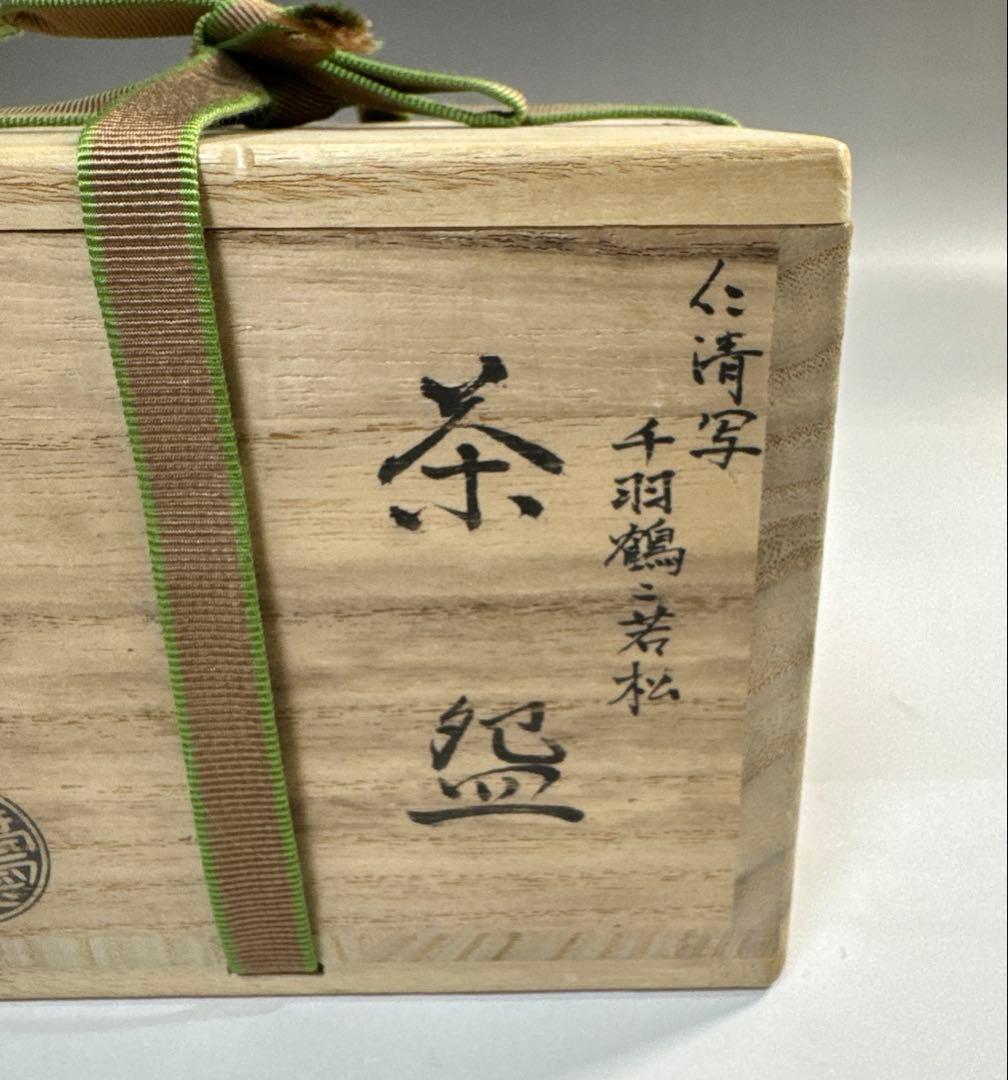 仁清写
千羽鶴ニ若松
茶盌